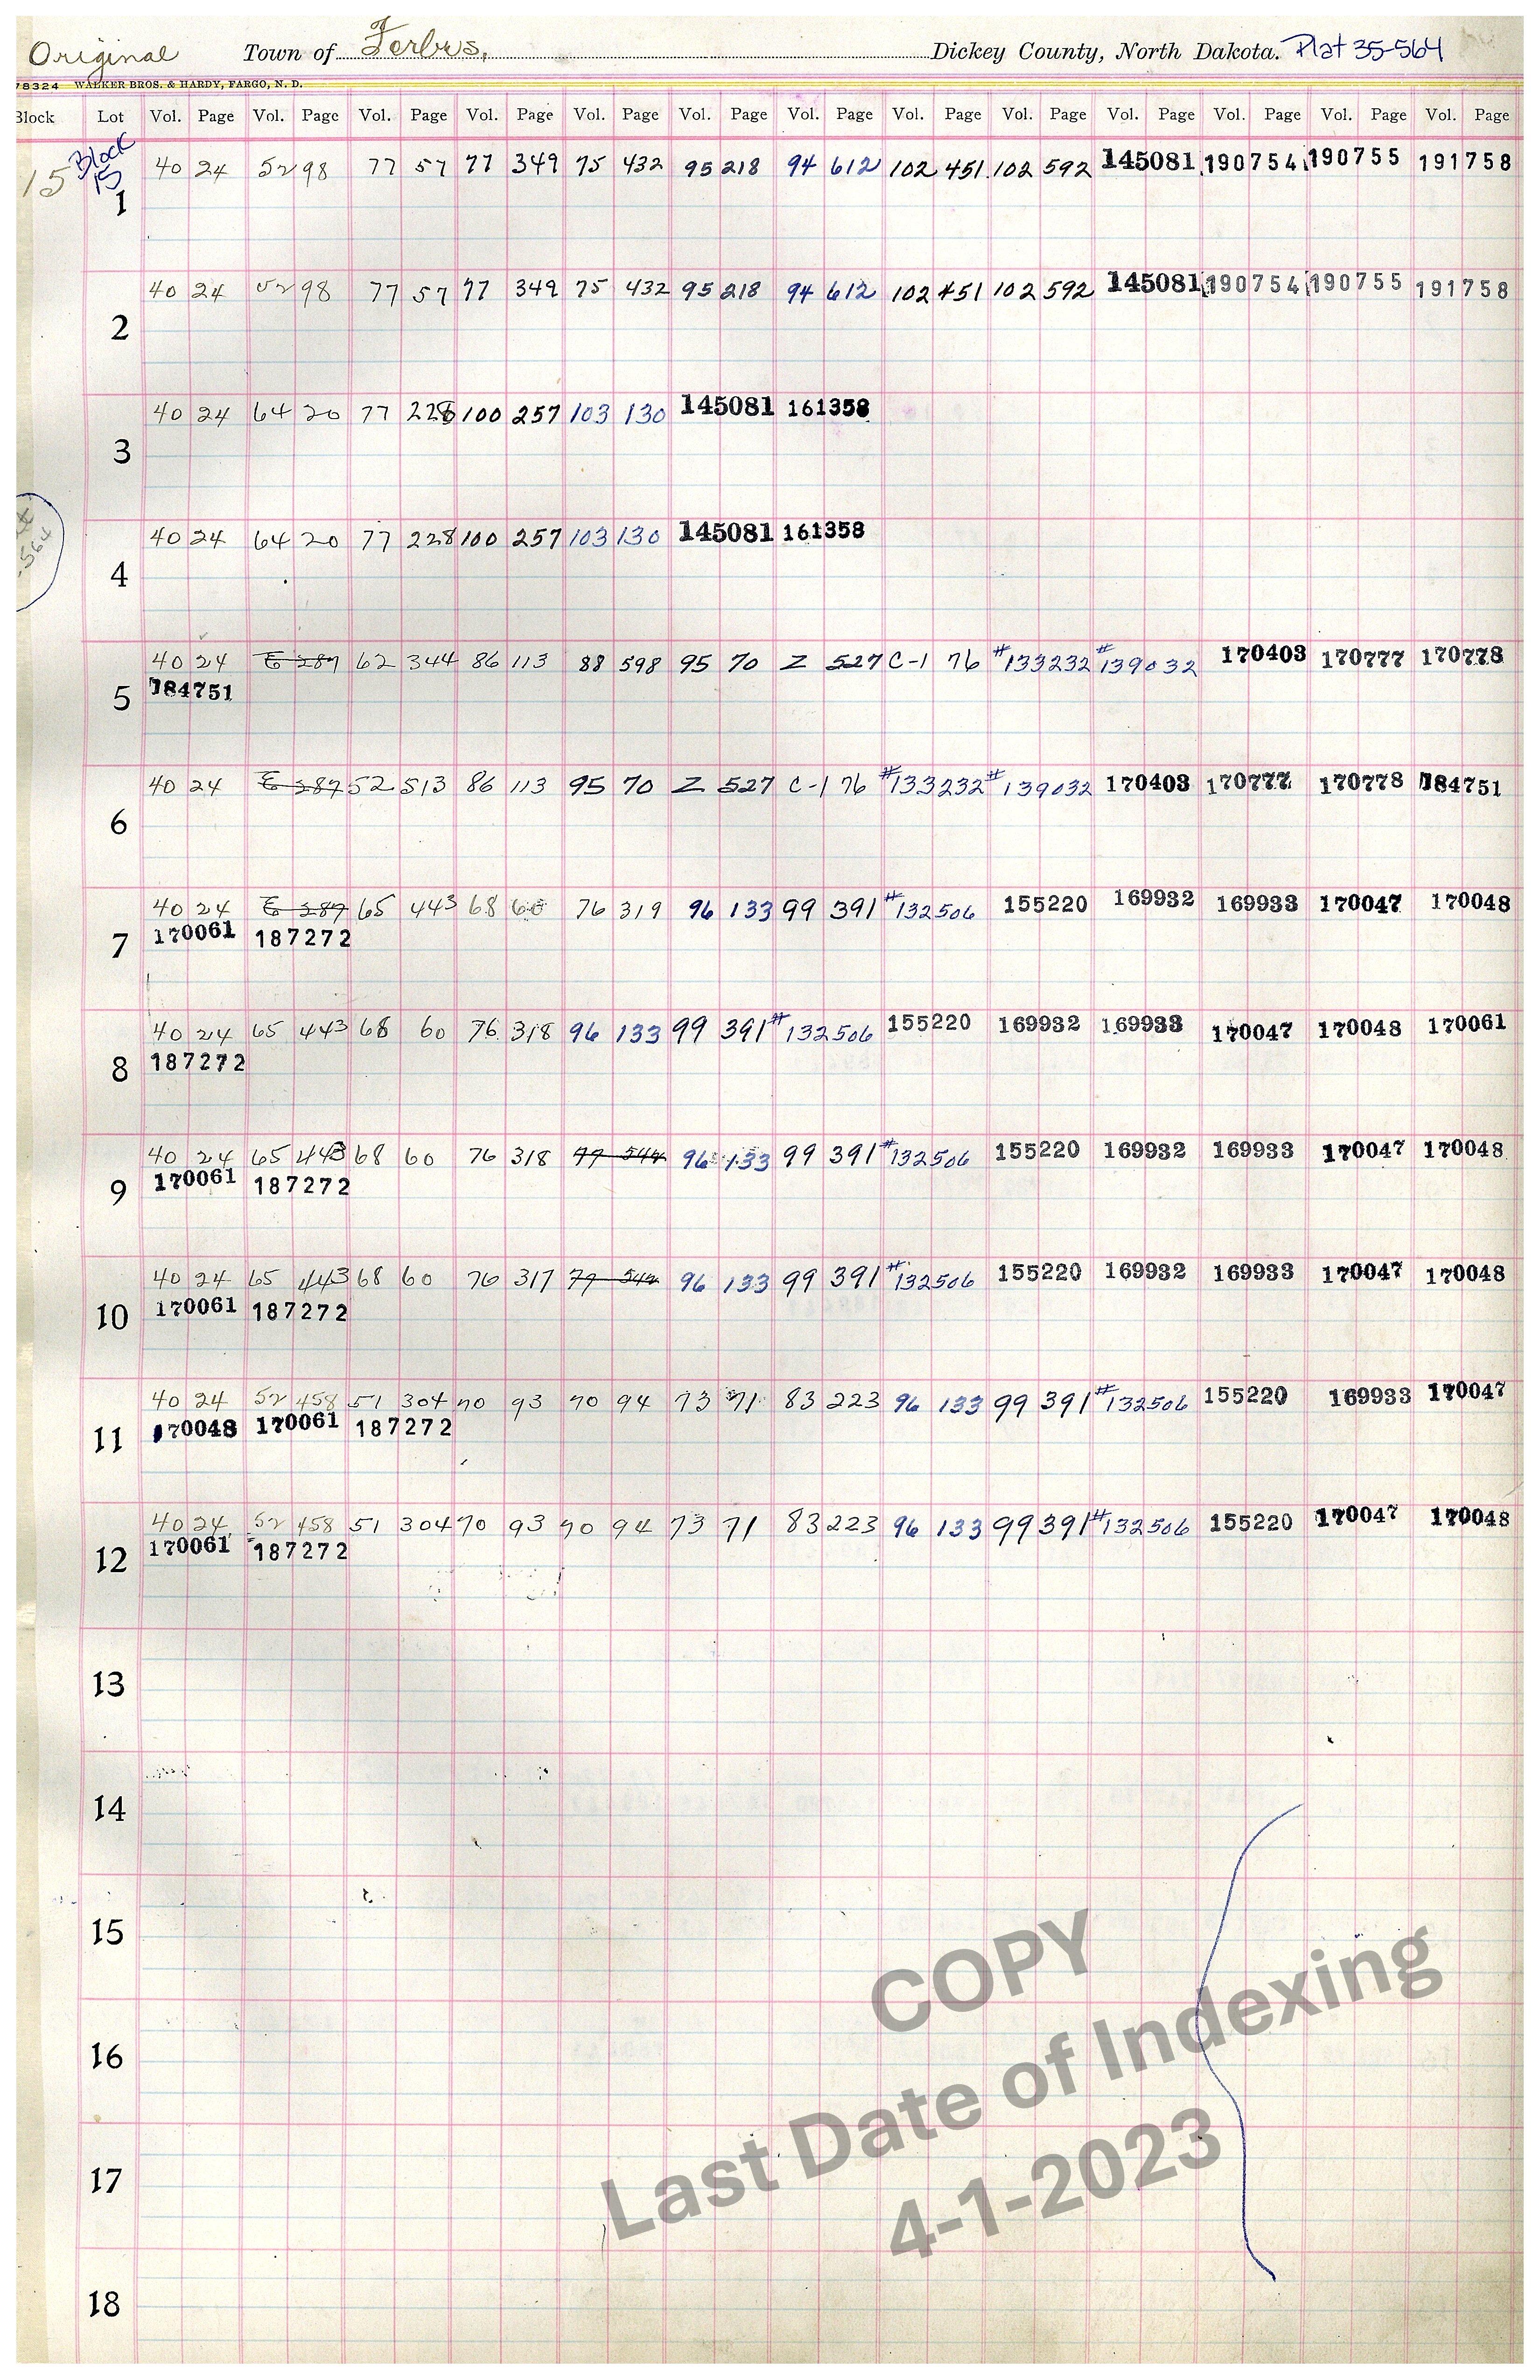 Original Town of Forbes, Dickey County, North Dakota. Plat 35-564
78324 WALKER BROS. & HARDY, FARGO, N. D.
Block Lot Vol. Page Vol. Page Vol. Page Vol. Page Vol. Page Vol. Page Vol. Page Vol. Page Vol. Page Vol. Page Vol. Page Vol. Page Vol. Page
15 Block 15
1 40 24 52 98 77 57 77 349 75 432 95 218 94 612 102 451 102 592 145081 190754 190755 191758
2 40 24 52 98 77 57 77 349 75 432 95 218 94 612 102 451 102 592 145081 190754 190755 191758
3 40 24 64 20 77 228 100 257 103 130 145081 161358
564
4 40 24 64 20 77 228 100 257 103 130 145081 161358
5 40 24 E 287 62 344 86 113 88 598 95 70 Z 527 C-1 76 #133232 #139032 170403 170777 170778
184751
6 40 24 E 287 52 513 86 113 95 70 Z 527 C-1 76 #133232 #139032 170403 170777 170778 184751
7 40 24 E 287 65 443 68 60 76 319 96 133 99 391 #132506 155220 169932 169933 170047 170048
170061 187272
8 40 24 65 443 68 60 76 318 96 133 99 391 #132506 155220 169932 169933 170047 170048 170061
187272
9 40 24 65 443 68 60 76 318 77 544 96 133 99 391 #132506 155220 169932 169933 170047 170048
170061 187272
10 40 24 65 443 68 60 76 317 77 544 96 133 99 391 #132506 155220 169932 169933 170047 170048
170061 187272
11 40 24 52 458 51 304 70 93 70 94 73 71 83 223 96 133 99 391 #132506 155220 169933 170047
170048 170061 187272
12 40 24 52 458 51 304 70 93 70 94 73 71 83 223 96 133 99 391 #132506 155220 170047 170048
170061 187272
13
14
15
16
17
18
COPY
Last Date of Indexing
4-1-2023